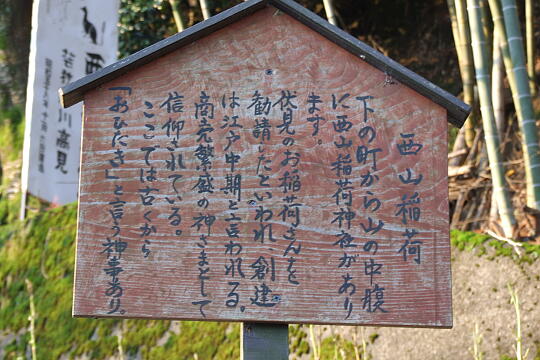 西山稲荷
下の町から山の中腹
に西山稲荷神社があり
ます。
伏見のお稲荷さんを
勧請したといわれ創建
は江戸中期と言われる。
商売繁盛の神さまとして
信仰されている。
ここでは古くから
「おひたき」と言う神事あり。
西
川高見